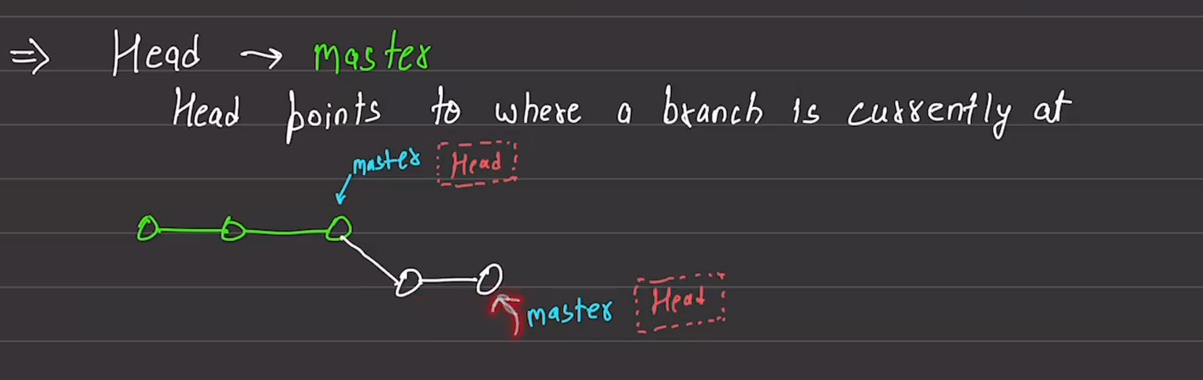 ⇒ Head → master
Head points to where a branch is currently at
master Head
master Head